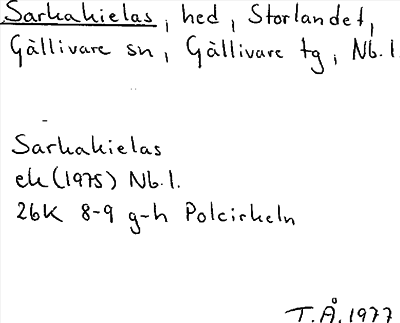 Sarkakielas, hed, Storlandet,
Gällivare sn, Gällivare tg, Nb.l.
Sarkakielas
ek (1975) Nb.l.
26K 8-9 g-h Polcirkeln
T.Å. 1977